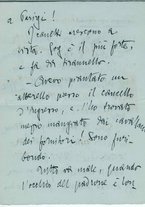 a Parigi!
I cavalli crescono a
vista. Gog è il più forte,
e fa da tirannello.
— Avevo piantato un
alberello presso il cancello
d'ingresso, e l'ho trovato
mezzo mangiato dai cavalli
dei fornitori! Sono furi-
bondo.
Tutto va male, quando
l'occhio del padrone è lon